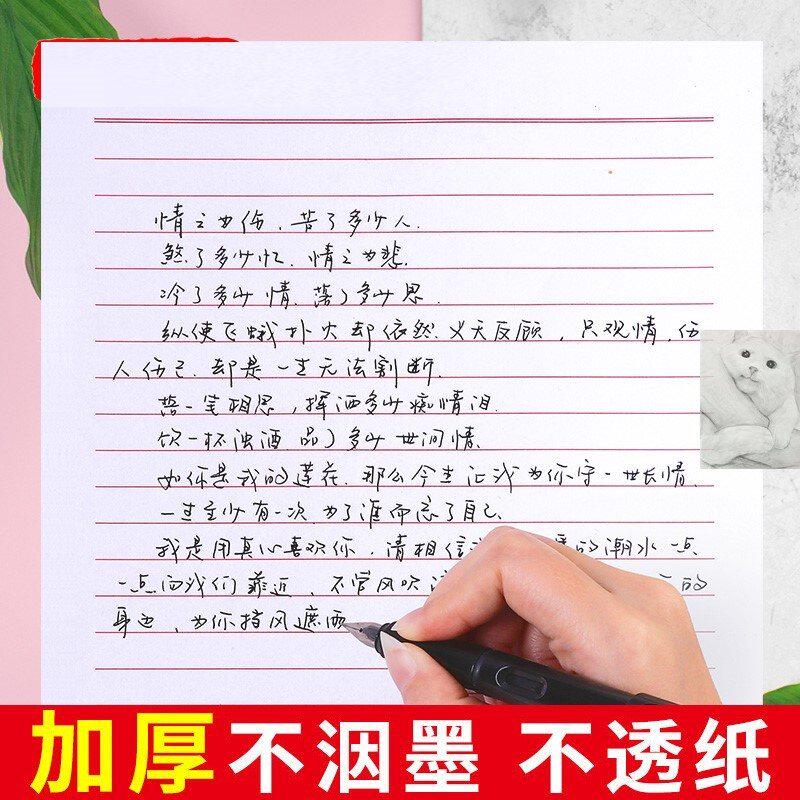 情之为伤，苦了多少人.
煞了多少忆.情之为悲.
冷了多少情.落了多少思.
纵使飞蛾扑火却依然义无反顾，只观情，伤
人伤己.却是一生无法割断.
蘸一笔相思，挥洒多少痴情泪.
饮一杯浊酒.品了多少世间情.
如你是我的莲花.那么今生让我为你守一世长情.
一生至少有一次.为了谁而忘了自己.
我是用真心喜欢你，请相信 的潮水一点
一点向我们靠近，不管风吹 的
身边，为你挡风遮雨
加厚不洇墨 不透纸